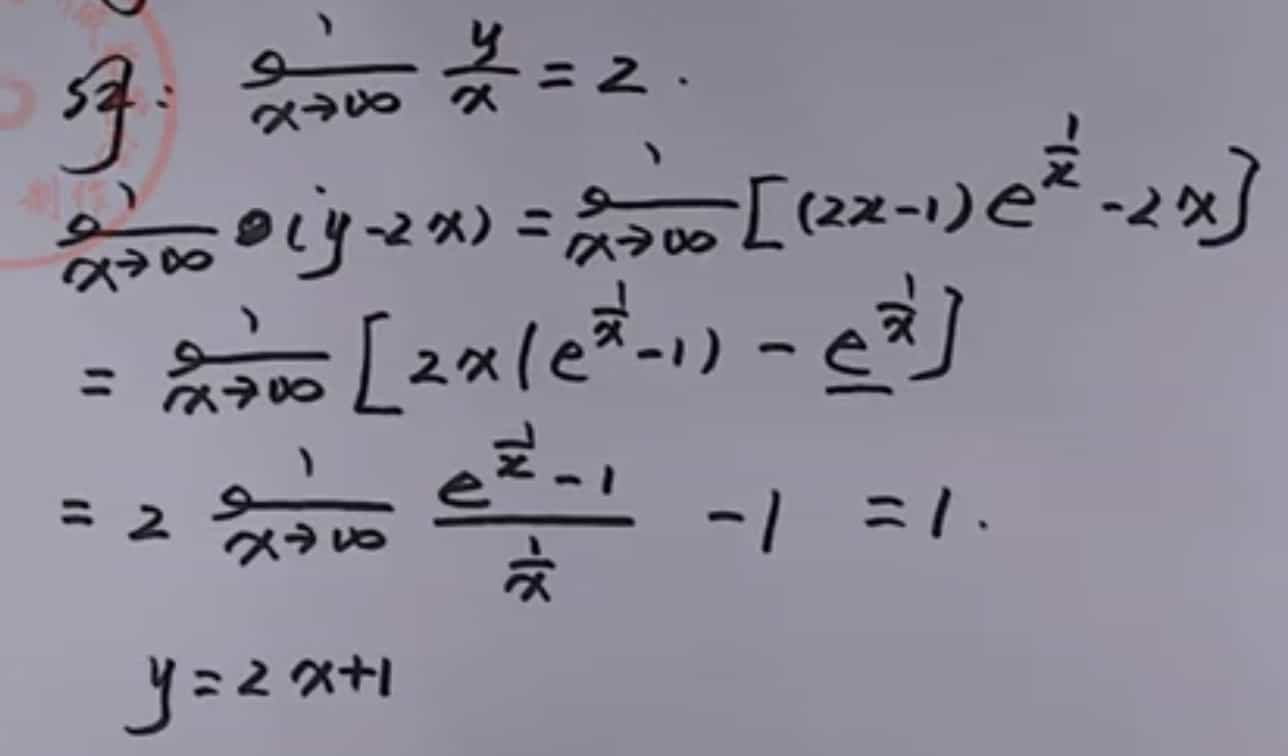 解: lim x→∞ y/x = 2.
lim x→∞ (y-2x) = lim x→∞ [(2x-1)e^(1/x) -2x]
= lim x→∞ [2x(e^(1/x) -1) - e^(1/x)]
= 2 lim x→∞ (e^(1/x) -1)/(1/x) -1 = 1.
y=2x+1